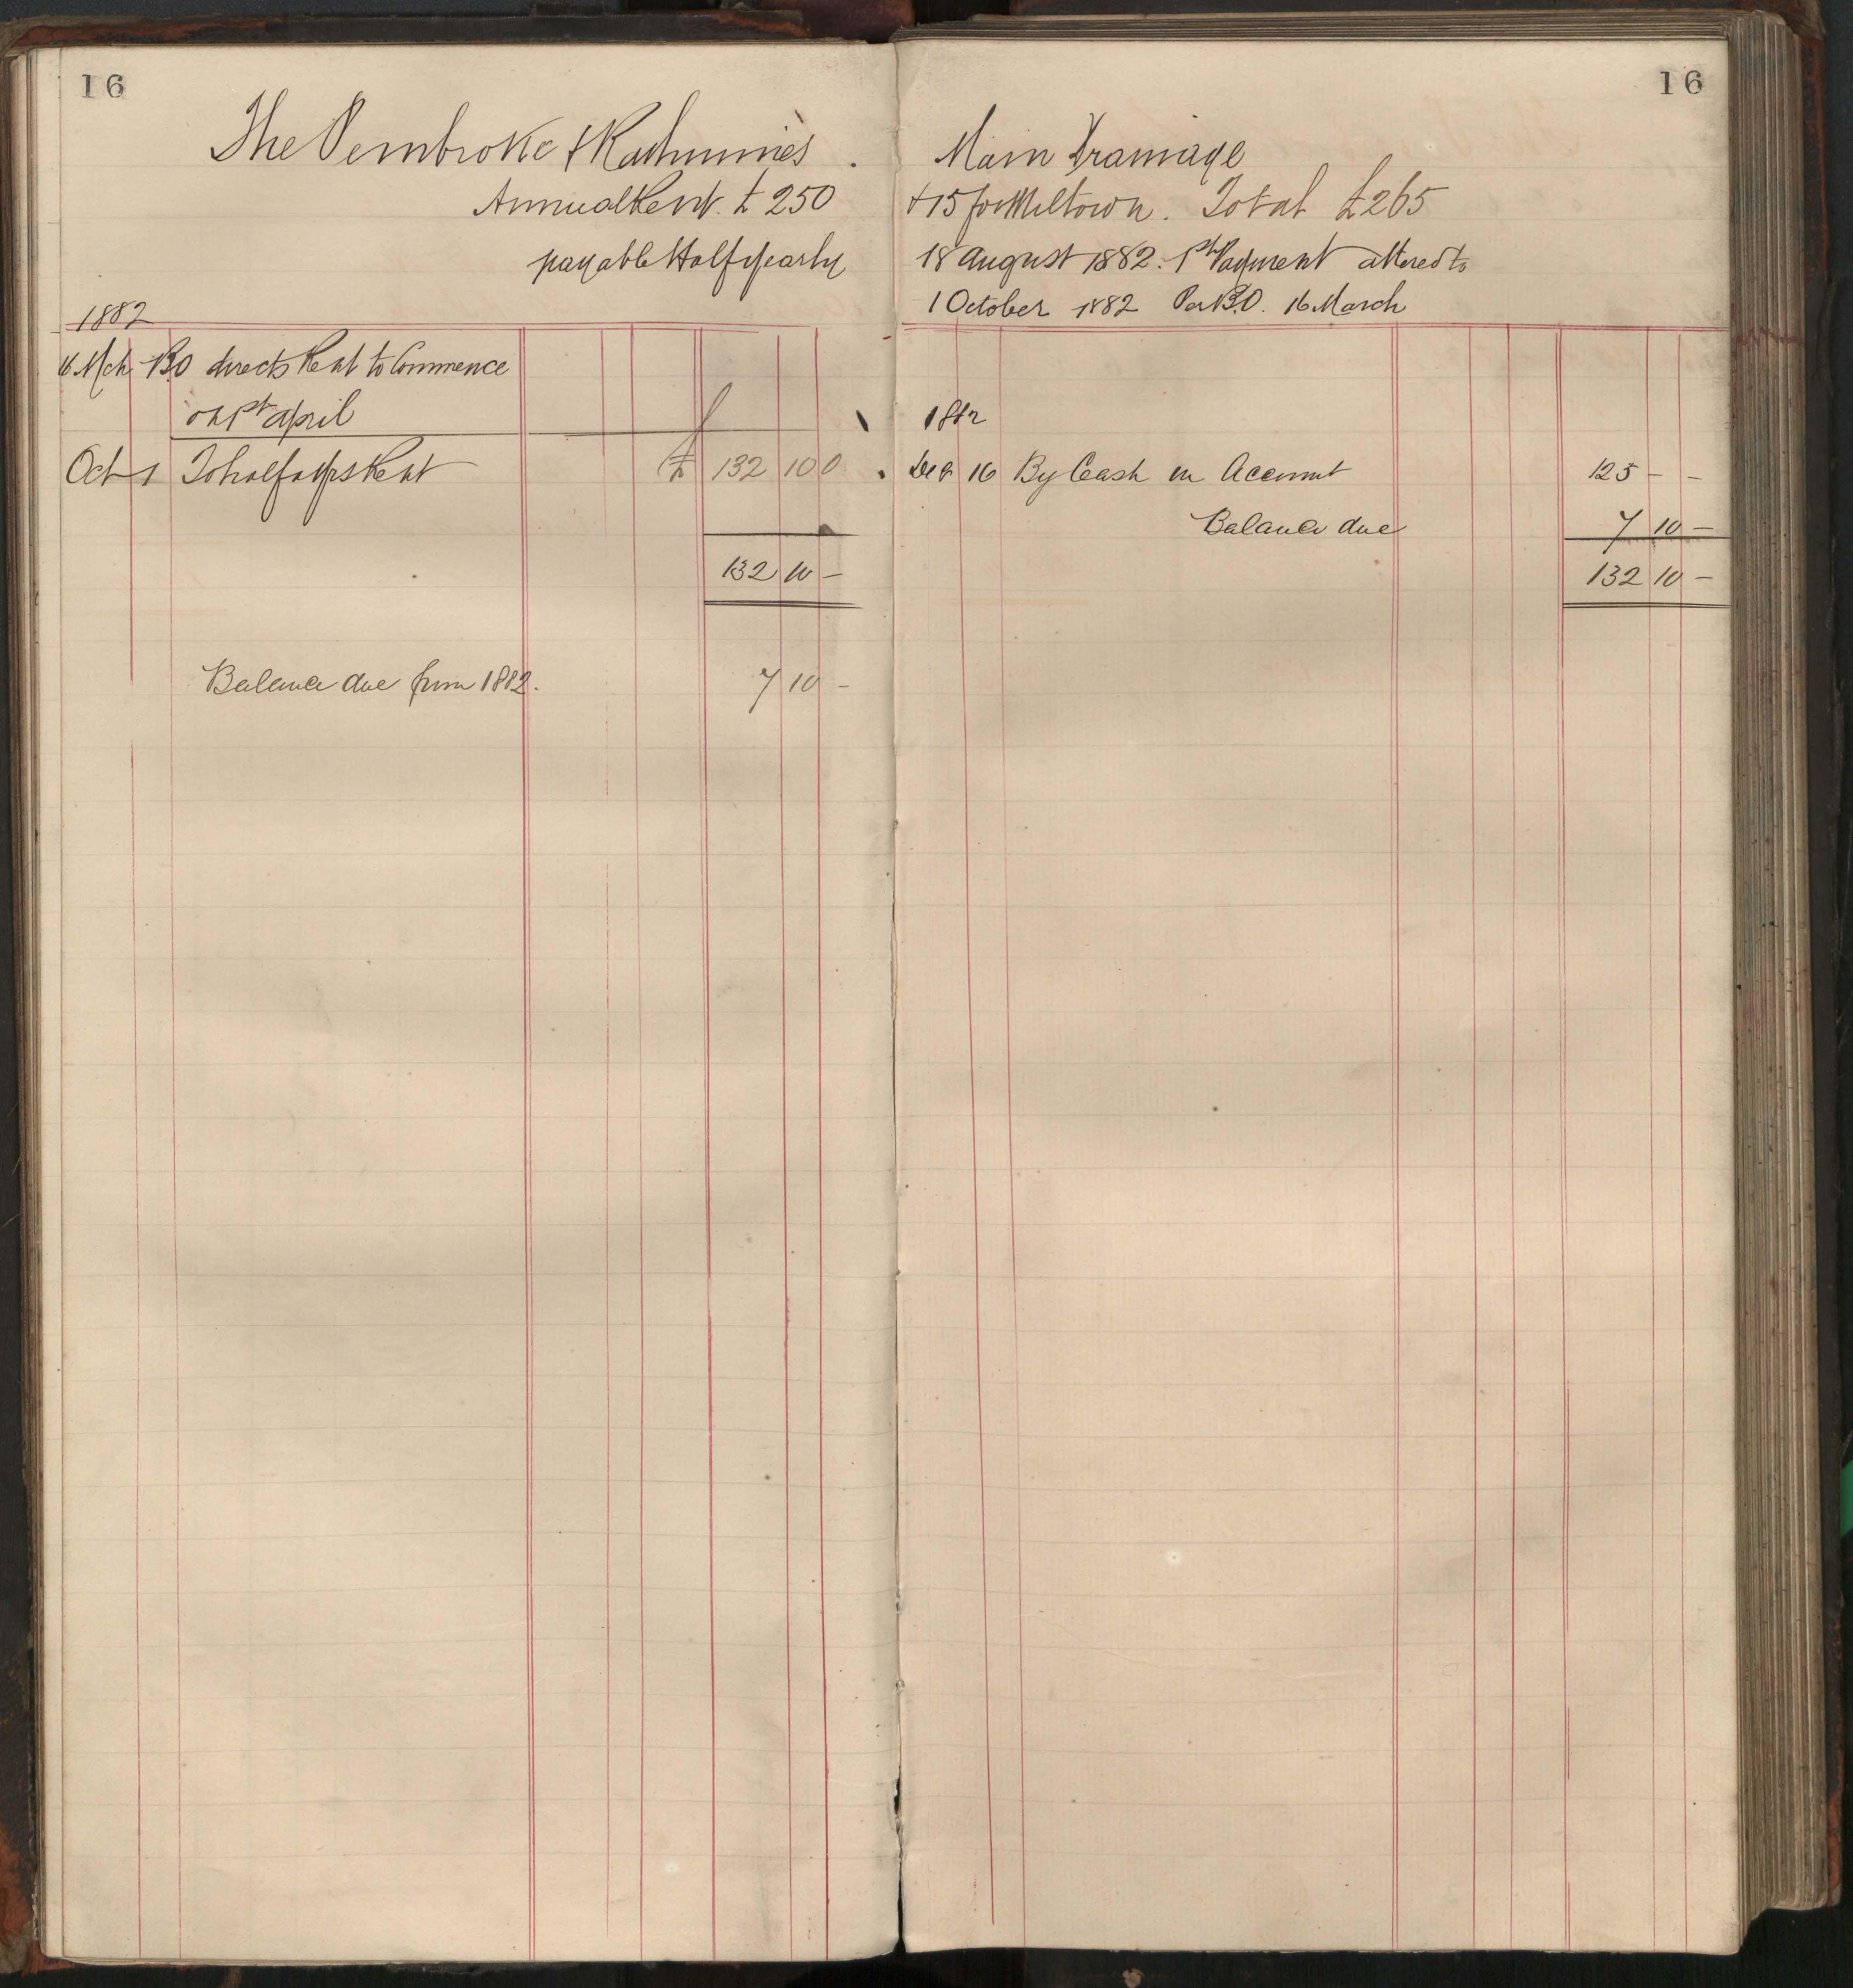 16
The Pembroke & Rathmines.
Annual Rent. £250
payable Half yearly
1882
16 Mch BO directs Rent to Commence
on 1st April
Oct 1 To half a yrs Rent £ 132 10 0
132 10 –
Balance due from 1882. 7 10 –
16
Main Drainage
+ 15 for Miltown. Total £265
18 August 1882. 1st Payment altered to
1 October 1882 Per B.O. 16 March
1882
Decr 16 By Cash on Account 125 – –
Balance due 7 10 –
132 10 –